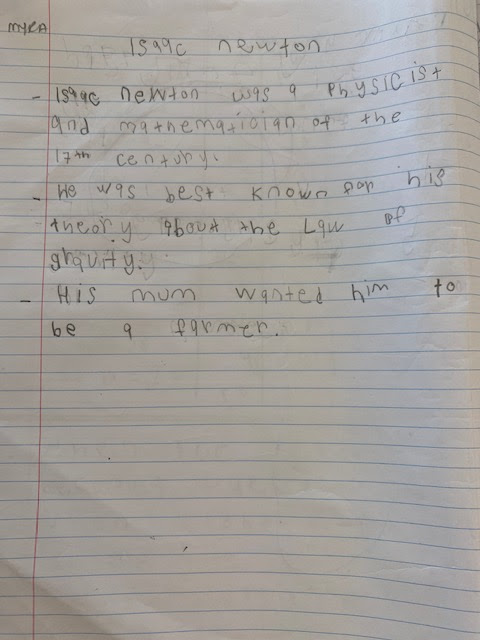 MYRA
Isaac newton
- Isaac newton was a physicist
and mathematician of the
17th century.
- He was best known for his
theory about the Law of
gravity.
- His mum wanted him to
be a farmer.